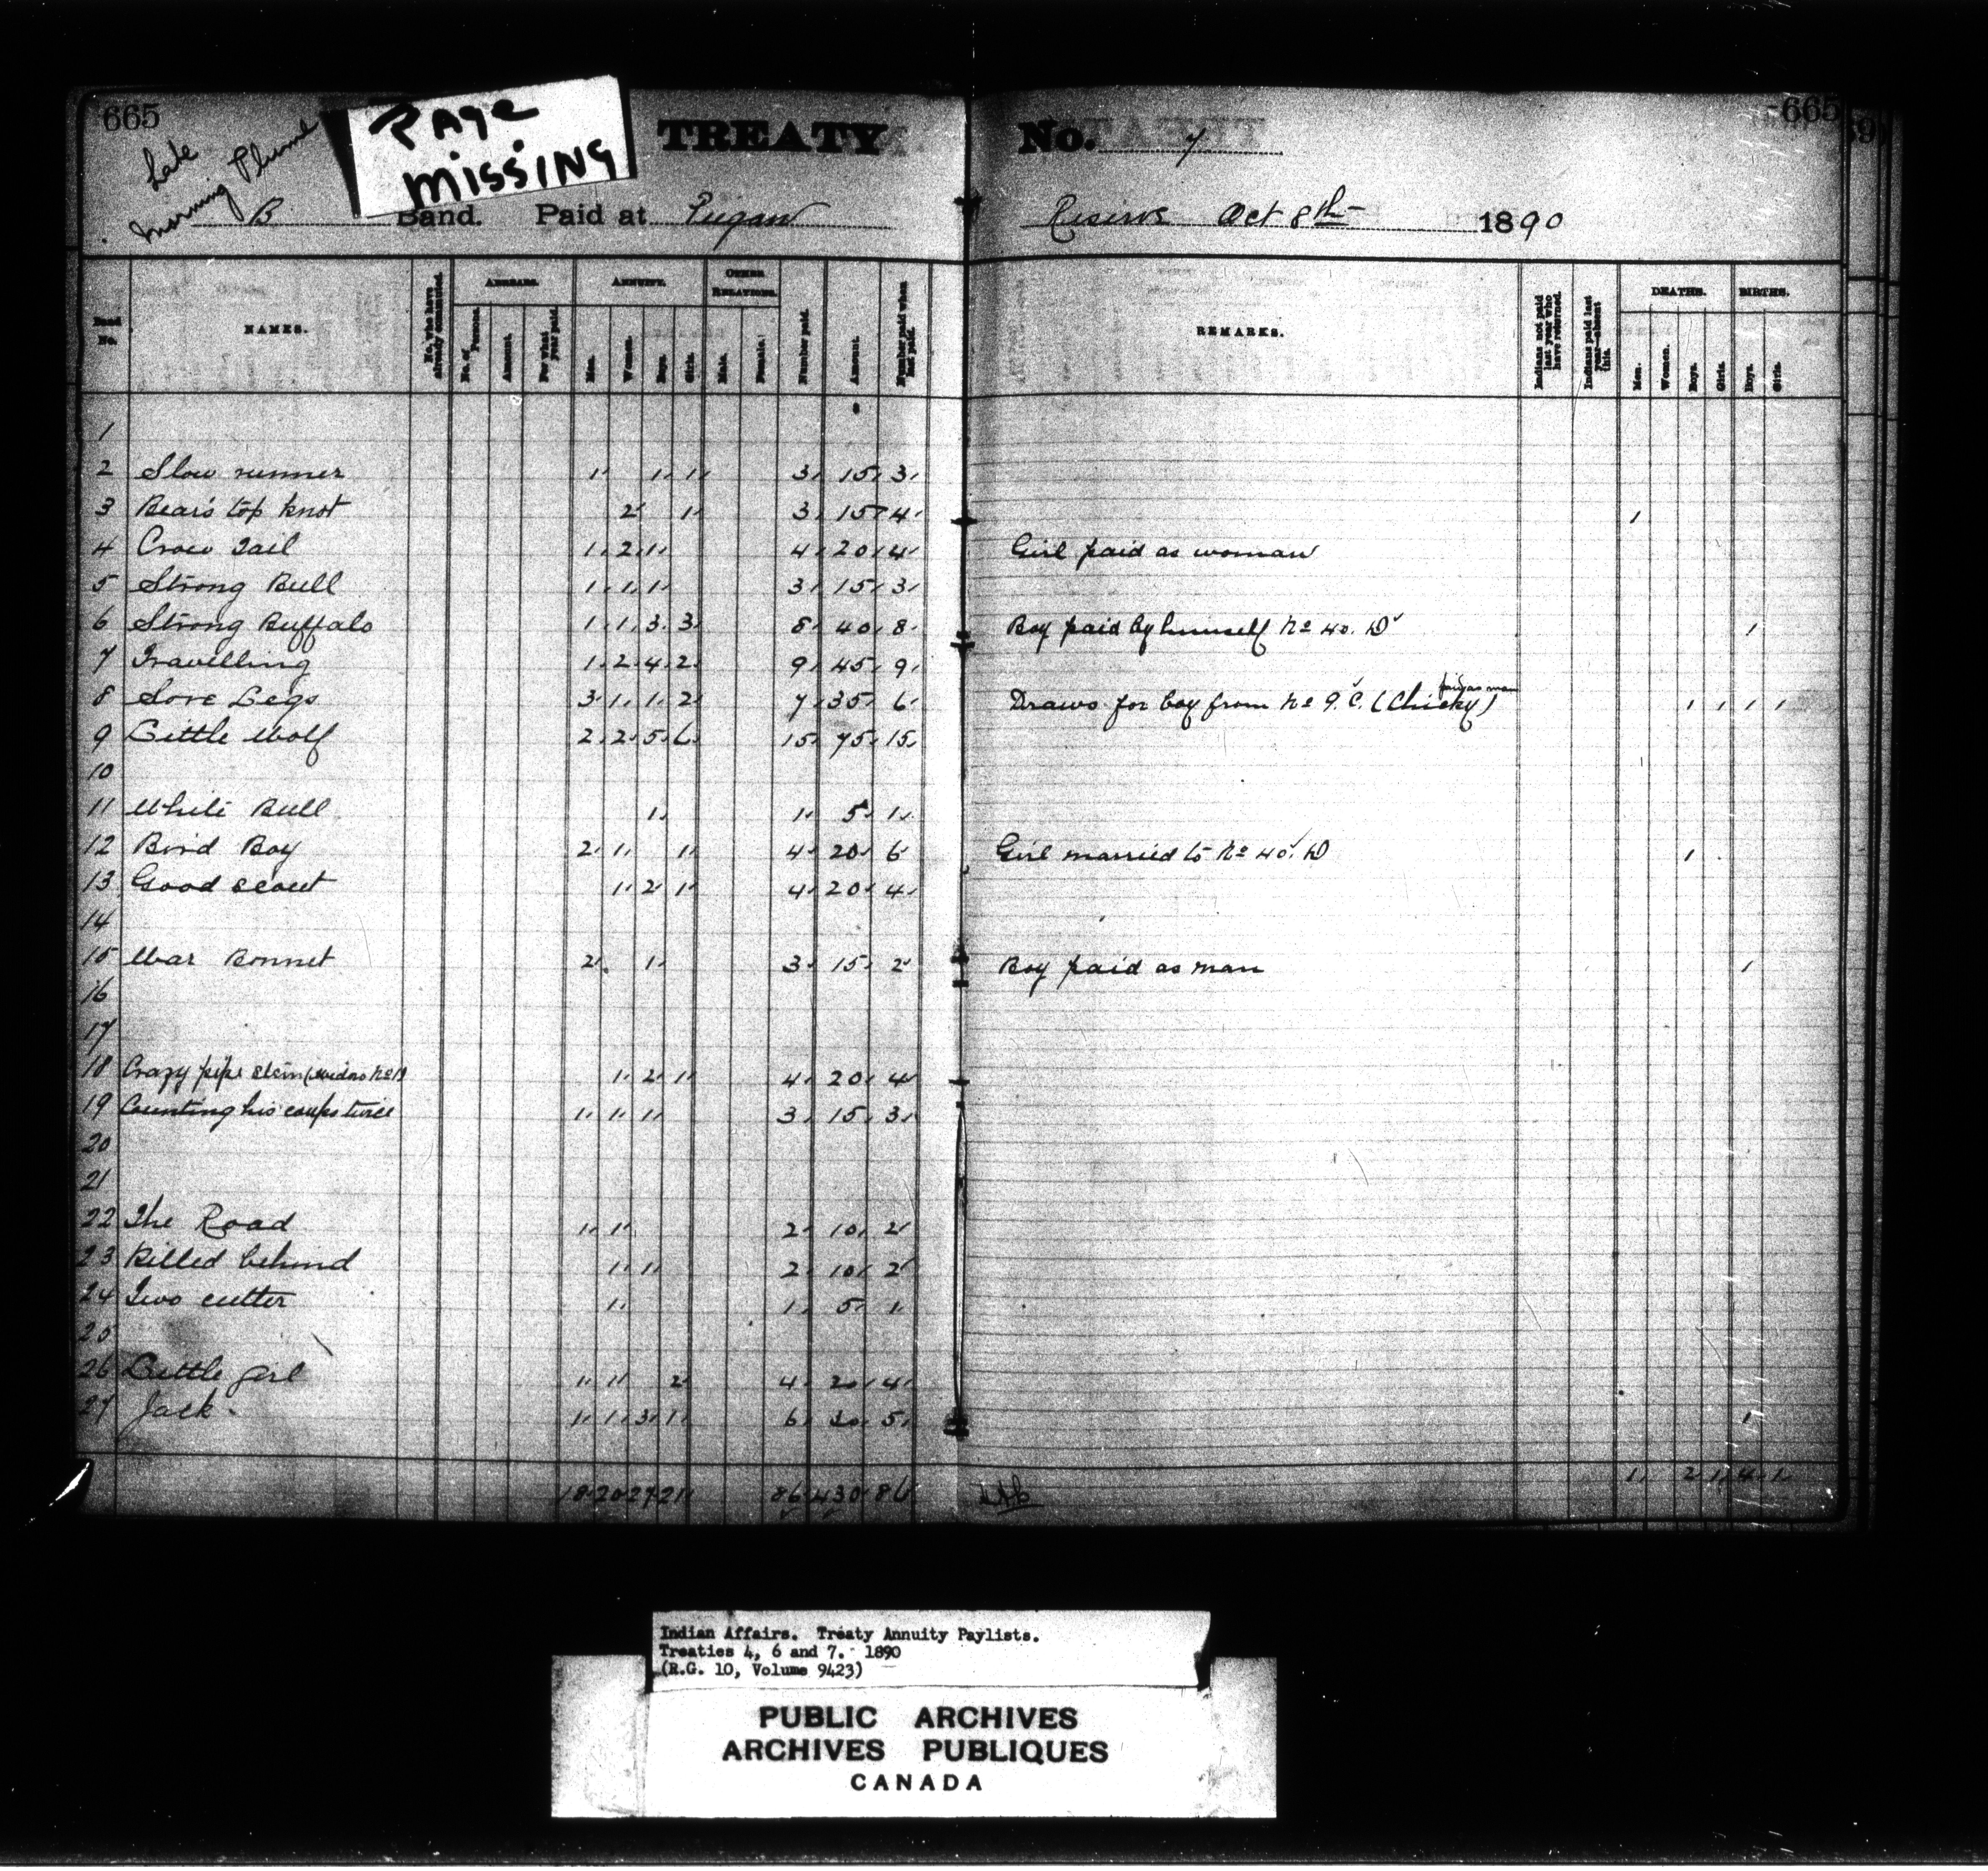 665
PAGE MISSING
TREATY No. 7
665
Late
Morning Plume
B Band. Paid at Piegan Reserve Oct 8th 1890
Band No.
NAMES.
No. who have already commuted.
ARREARS.
No. of Persons.
Amount.
For what year paid.
ANNUITY.
Men.
Women.
Boys.
Girls.
OTHER RELATIONS.
Male.
Female.
Number paid.
Amount.
Number paid when last paid.
REMARKS.
Indians not paid last year who have returned.
Indians paid last year—absent this.
DEATHS.
Men.
Women.
Boys.
Girls.
BIRTHS.
Boys.
Girls.
1
2 Slow runner 1 1 1 3 15 3
3 Bear's top knot 2 1 3 15 4 1
4 Crow Tail 1 2 1 4 20 4 Girl paid as woman
5 Strong Bull 1 1 1 3 15 3
6 Strong Buffalo 1 1 3 3 8 40 8 Boy paid by himself No 40. D 1
7 Travelling 1 2 4 2 9 45 9
8 Sore Legs 3 1 1 2 7 35 6 Draws for boy from No 9. C. (Chicky) paid as man 1 1 1 1
9 Little Wolf 2 2 5 6 15 75 15
10
11 White Bull 1 1 5 1
12 Bird Boy 2 1 1 4 20 6 Girl married to No 40. D 1
13 Good scout 1 2 1 4 20 4
14
15 War Bonnet 2 1 3 15 2 Boy paid as man 1
16
17
18 Crazy pipe stem (widow No 1) 1 2 1 4 20 4
19 Counting his coups twice 1 1 1 3 15 3
20
21
22 The Road 1 1 2 10 2
23 Killed behind 1 1 2 10 2
24 Two cutter 1 1 5 1
25
26 Little girl 1 1 2 4 20 4
27 Jack. 1 1 3 1 6 30 5 1
18 20 27 21 86 430 86 1 2 1 4 1
Indian Affairs. Treaty Annuity Paylists.
Treaties 4, 6 and 7. 1890
(R.G. 10, Volume 9423)
PUBLIC ARCHIVES
ARCHIVES PUBLIQUES
CANADA